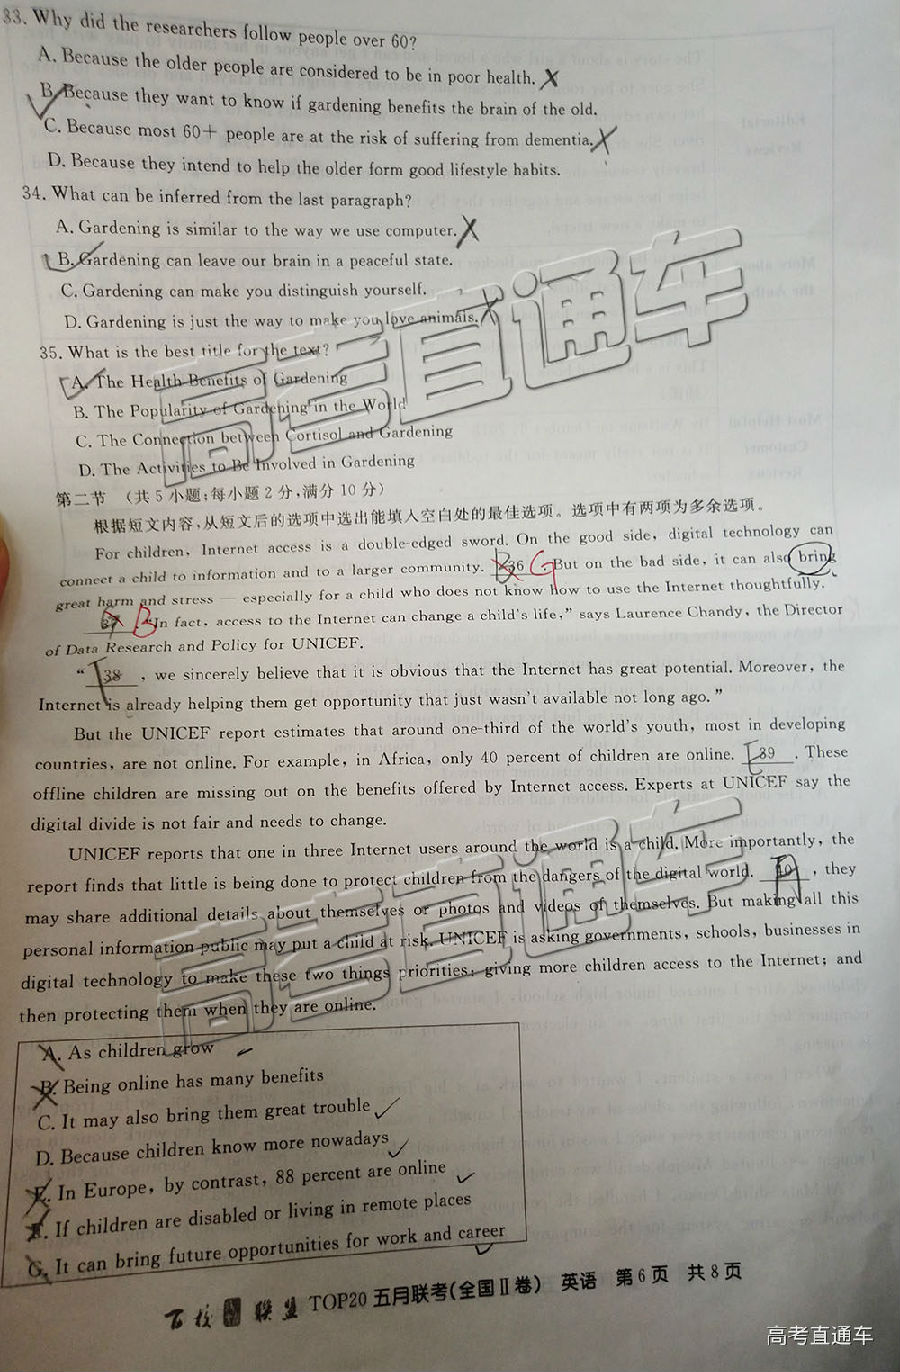 33. Why did the researchers follow people over 60?
A. Because the older people are considered to be in poor health.
B. Because they want to know if gardening benefits the brain of the old.
C. Because most 60+ people are at the risk of suffering from dementia.
D. Because they intend to help the older form good lifestyle habits.
34. What can be inferred from the last paragraph?
A. Gardening is similar to the way we use computer.
B. Gardening can leave our brain in a peaceful state.
C. Gardening can make you distinguish yourself.
D. Gardening is just the way to make you love animals.
35. What is the best title for the text?
A. The Health Benefits of Gardening
B. The Popularity of Gardening in the World
C. The Connection between Cortisol and Gardening
D. The Activities to Be Involved in Gardening
高考直通车
第二节 (共5小题;每小题2分,满分10分)
根据短文内容,从短文后的选项中选出能填入空白处的最佳选项。选项中有两项为多余选项。
For children, Internet access is a double-edged sword. On the good side, digital technology can
connect a child to information and to a larger community. 36 G. But on the bad side, it can also bring
great harm and stress — especially for a child who does not know how to use the Internet thoughtfully.
37 B "In fact, access to the Internet can change a child's life," says Laurence Chandy, the Director
of Data Research and Policy for UNICEF.
" 38 , we sincerely believe that it is obvious that the Internet has great potential. Moreover, the
Internet is already helping them get opportunity that just wasn't available not long ago."
But the UNICEF report estimates that around one-third of the world's youth, most in developing
countries, are not online. For example, in Africa, only 40 percent of children are online. 39 . These
offline children are missing out on the benefits offered by Internet access. Experts at UNICEF say the
digital divide is not fair and needs to change.
UNICEF reports that one in three Internet users around the world is a child. More importantly, the
report finds that little is being done to protect children from the dangers of the digital world. 40 A , they
may share additional details about themselves or photos and videos of themselves. But making all this
personal information public may put a child at risk. UNICEF is asking governments, schools, businesses in
digital technology to make these two things priorities: giving more children access to the Internet; and
then protecting them when they are online.
高考直通车
A. As children grow
B. Being online has many benefits
C. It may also bring them great trouble
D. Because children know more nowadays
E. In Europe, by contrast, 88 percent are online
F. If children are disabled or living in remote places
G. It can bring future opportunities for work and career
百校联盟 TOP20 五月联考(全国II卷) 英语 第6页 共8页
高考直通车